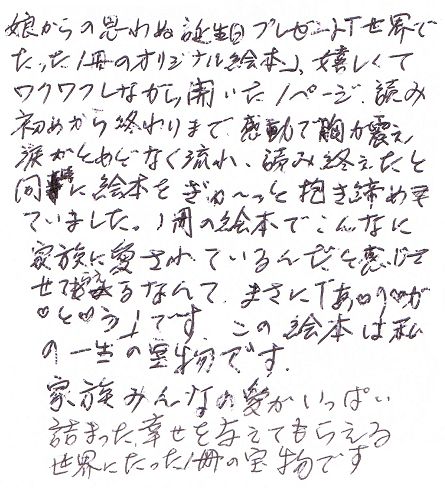 娘からの思わぬ誕生日プレゼント「世界で
たった1冊のオリジナル絵本」、嬉しくて
ワクワクしながら開いた1ページ、読み
初めから終わりまで感動で胸が震え
涙がとめどなく流れ、読み終えたと
同時に絵本をぎゅ〜っと抱き締め
ていました。1冊の絵本でこんなに
家族に愛されているんだと感じさ
せて貰えるなんて、まさに「あ♡り♡が
♡と♡う」です。この絵本は私
の一生の宝物です。
家族みんなの愛がいっぱい
詰まった幸せを与えてもらえる
世界にたった1冊の宝物です